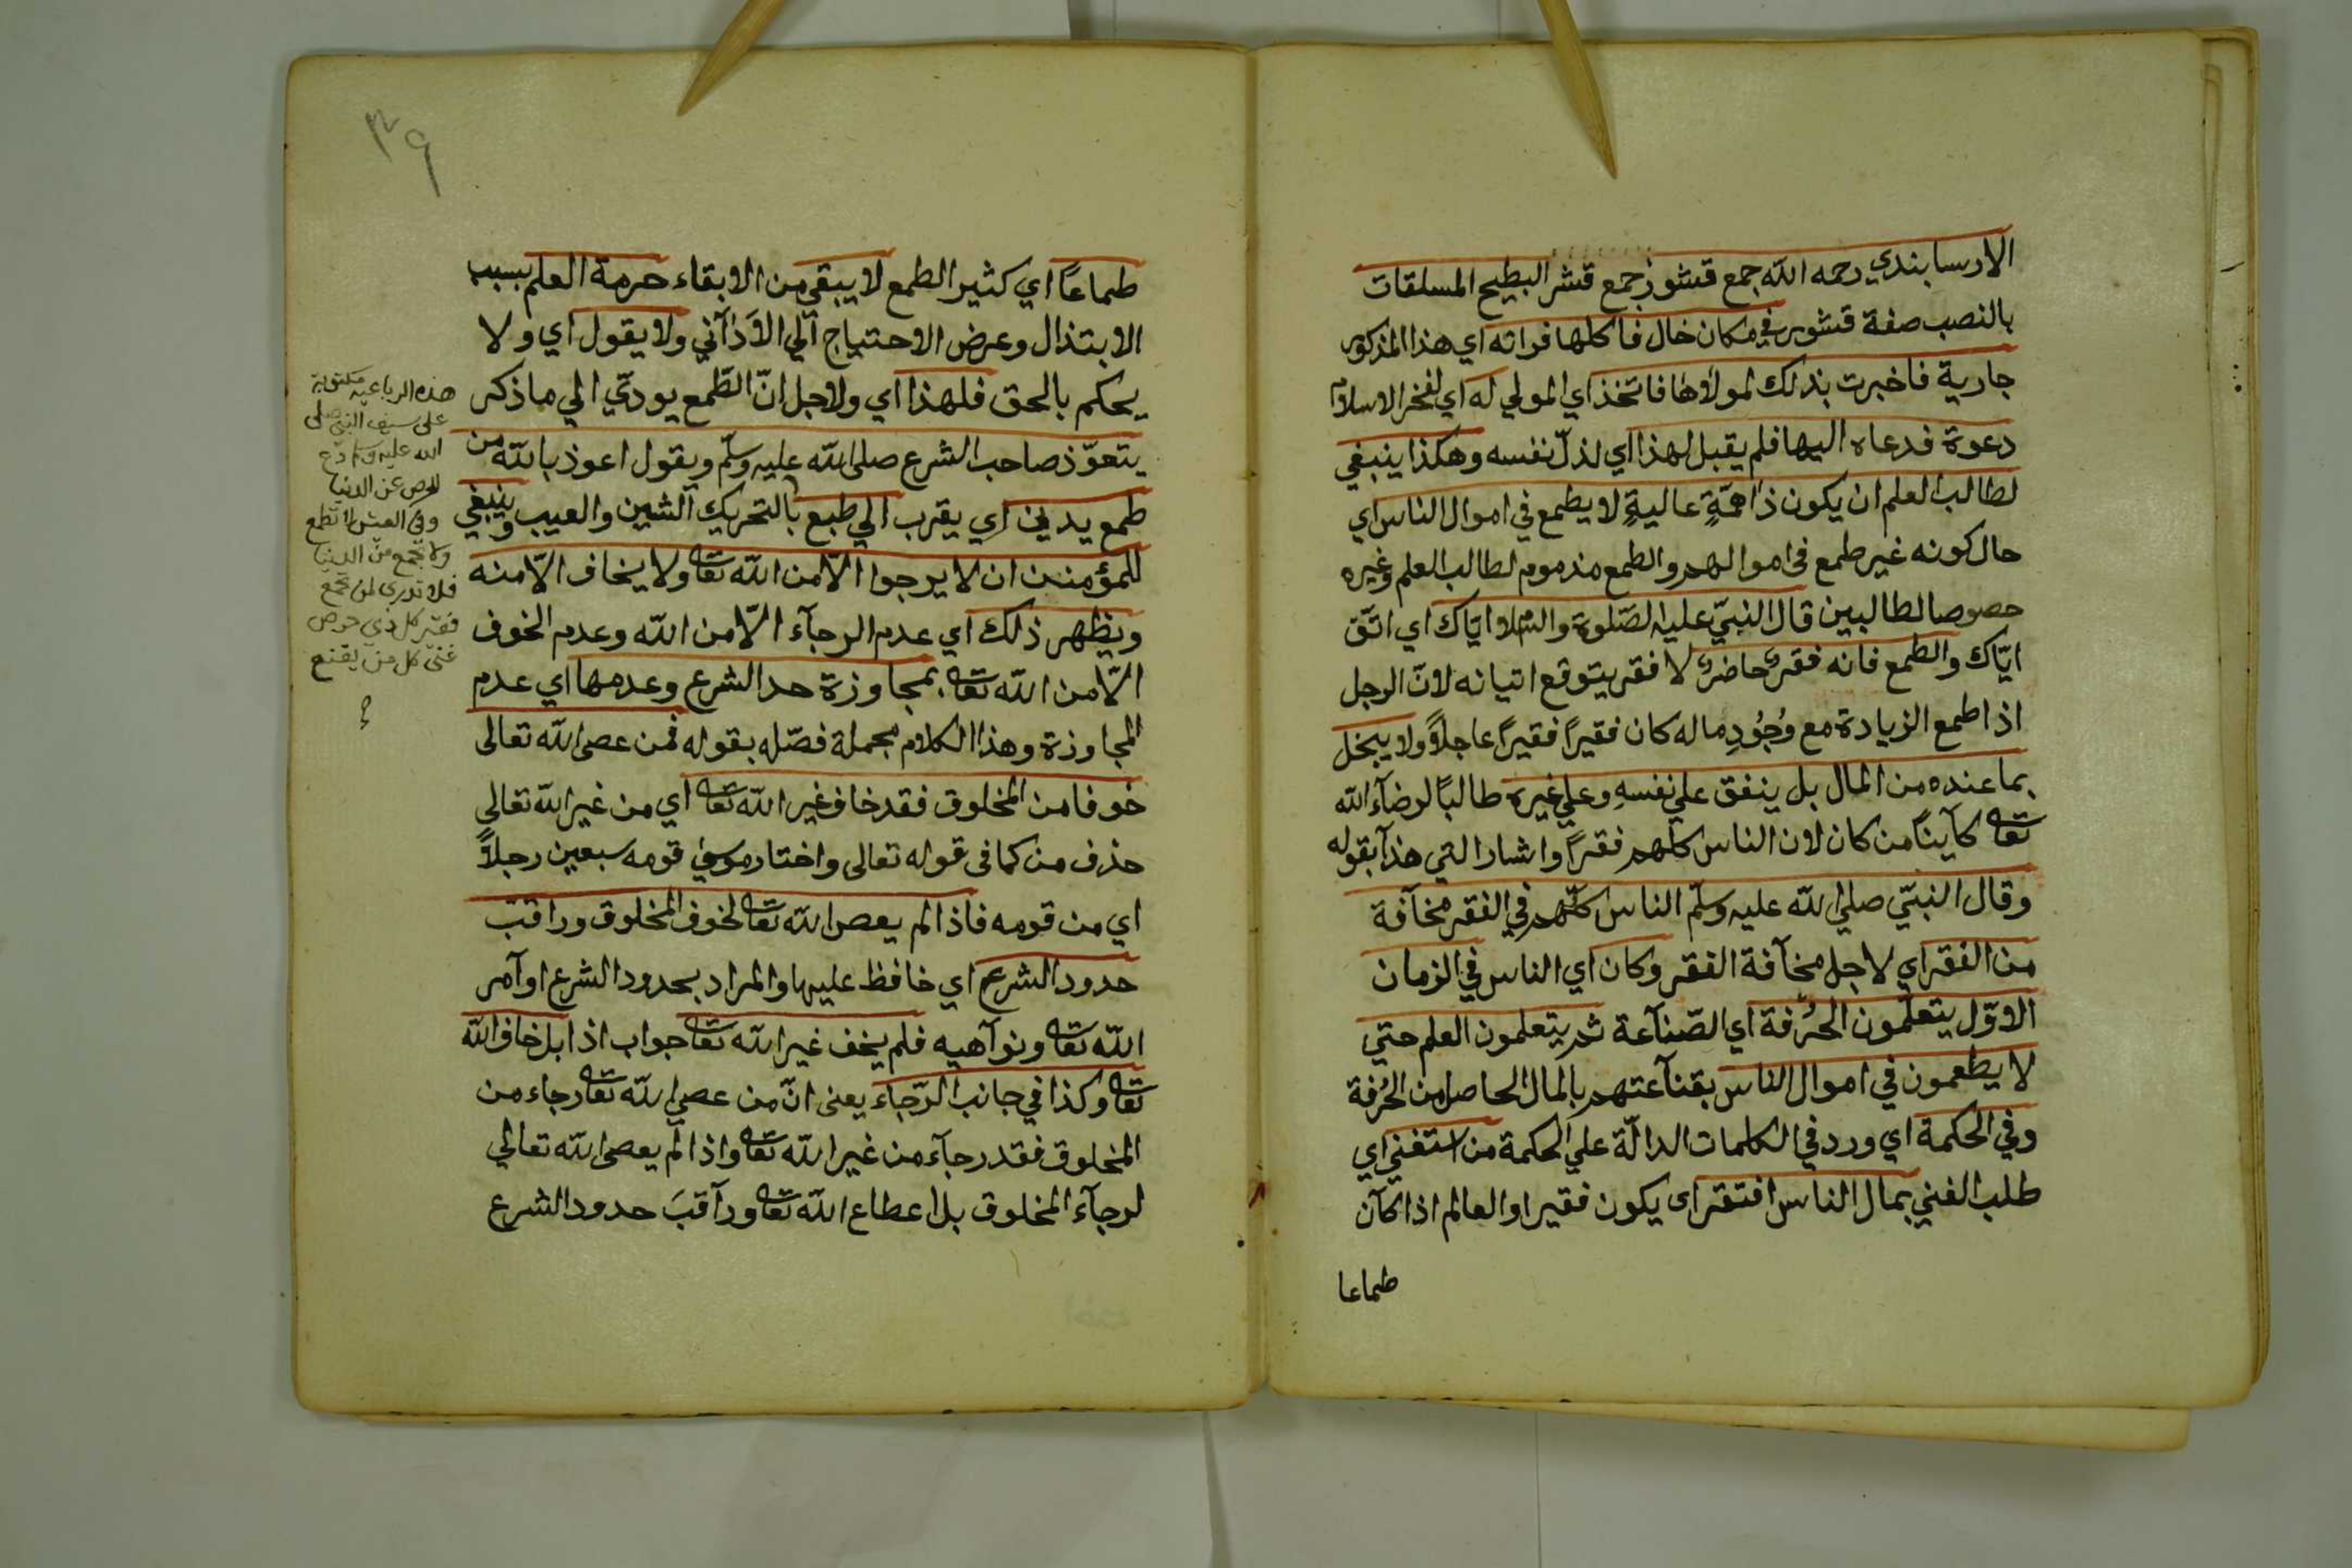 الارسابندي رحمه الله جمع قشور جمع قشر البطيح الملسقات
بالنصب صفة قشور في مكان خال فاكلها فراته اي هذا المذكور
جارية فاخبرت بذلك لمولاها فاتخذ اي المولي له اي لفخر الاسلام
دعوة فدعاه اليها فلم يقبل لهذا اي لذلّ نفسه وهكذا ينبغي
لطالب العلم ان يكون ذاهمّةٍ عاليةٍ لا يطمع في اموال الناس اي
حال كونه غير طمع في اموالهم والطمع مذموم لطالب العلم وغيره
حصوصا لطالبين قال النبيّ عليه الصّلوة والسّلام ايّاك اي اتّق
ايّاك والطمع فانه فقر حاضر لا فقر يتوقع اتيانه لانّ الرجل
اذا طمع الزيادة مع وُجُودِ ماله كان فقيرًا فقيرًا عاجلاً ولا يبخل
بما عنده من المال بل ينفق علي نفسهِ وعلي غيره طالبًا لرضآء الله
تعا كآينًا من كان لان الناس كلهم فقرًا واشار الي هذا بقوله
وقال النبيّ صلي الله عليه وسلّم الناس كلّهم في الفقر مخآفة
من الفقر اي لاجل مخآفة الفقر وكان اي الناس في الزمان
الاوّل يتعلّمون الحُرفة اي الصّنآعة ثم يتعلمون العلم حتي
لا يطعمون في اموال الناس بقنآعتهم بالمال الحاصل من الحُرفة
وفي الحكمة اي ورد في الكلمات الدالّة علي الحكمة من استغني اي
طلب الغني بمال الناس افتقر اى يكون فقيرا والعالم اذا كآن
طماعا
٣٩
طماعًا اي كثير الطمع لا يبقي من الابقاء حرمة العلم بسبب
الابتذال وعرض الاحتياج الي الاَدآني ولا يقول اي ولا
يحكم بالحق فلهذا اي ولاجل انّ الطّمع يودّي الي ما ذكر
يتعوّذ صاحب الشرع صلى الله عليه وسلّم ويقول اعوذ بالله من
طمع يدني اي يقرب الي طبع بالتحريك الشين والعيب وينبغي
للمؤمنين ان لا يرجوا الّا من الله تعا ولا يخاف الّا منه
ويظهر ذلك اي عدم الرجآء الّا من الله وعدم الخوف
الّا من الله تعا بمجاوزة حد الشرع وعدمها اي عدم
المجاوزة وهذا الكلام مجملة فصّله بقوله فمن عصى الله تعالى
خوفا من المخلوق فقد خاف غير الله تعا اي من غير الله تعالي
حذف من كما في قوله تعالى واختار موسي قومه سبعين رجلاً
اي من قومه فاذا لم يعص الله تعا لخوف المخلوق وراقب
حدود الشرع اي خافظ عليها والمراد بحدود الشرع اوآمر
الله تعا ونوآهيه فلم يخف غير الله تعا جواب اذا بل خاف الله
تعا وكذا في جانب الرّجاء يعنى انّ من عصي الله تعا رجاء من
المخلوق فقد رجآء من غير الله تعا واذا لم يعصى الله تعالي
لرجآء المخلوق بل اعطاع الله تعا ورآقبَ حدود الشرع
هذه الرباعيه مكتوبة
على سيف النبي صلى
الله عليه وسلم دع
الحرص عن الدنيا
وفى العيش لا تطمع
ولا تجمع من الدنيا
فلا تدرى لمن تجمع
فقير كل ذي حرص
غنى كل من يقنع